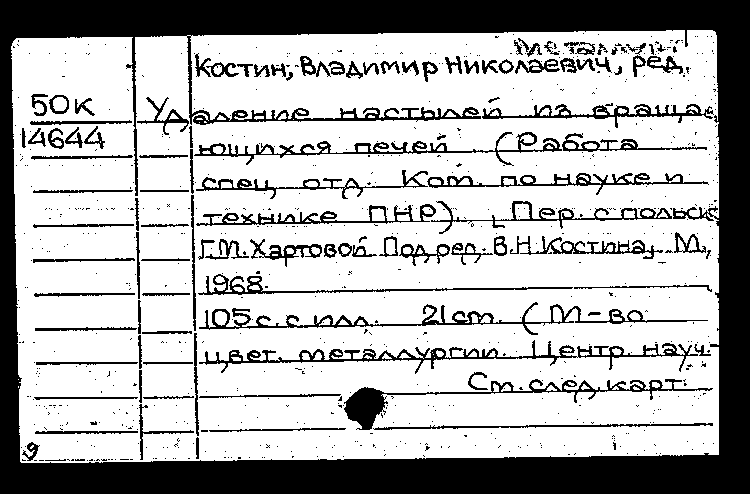 Металлург
Костин, Владимир Николаевич, ред.
50к
14644
Удаление настылей из враща-
ющихся печей (Работа
спец. отд. Ком. по науке и
технике ПНР). [Пер. с польск.
Г.М. Хартовой. Под ред. В.Н. Костина]. М.,
1968.
105 с. с илл. 21 cm. (М-во
цвет. металлургии. Центр. науч.-
См. след. карт.
9